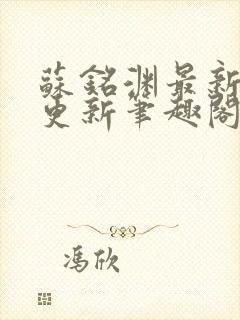 蘇銘淵最新
更新筆趣閣
馮欣